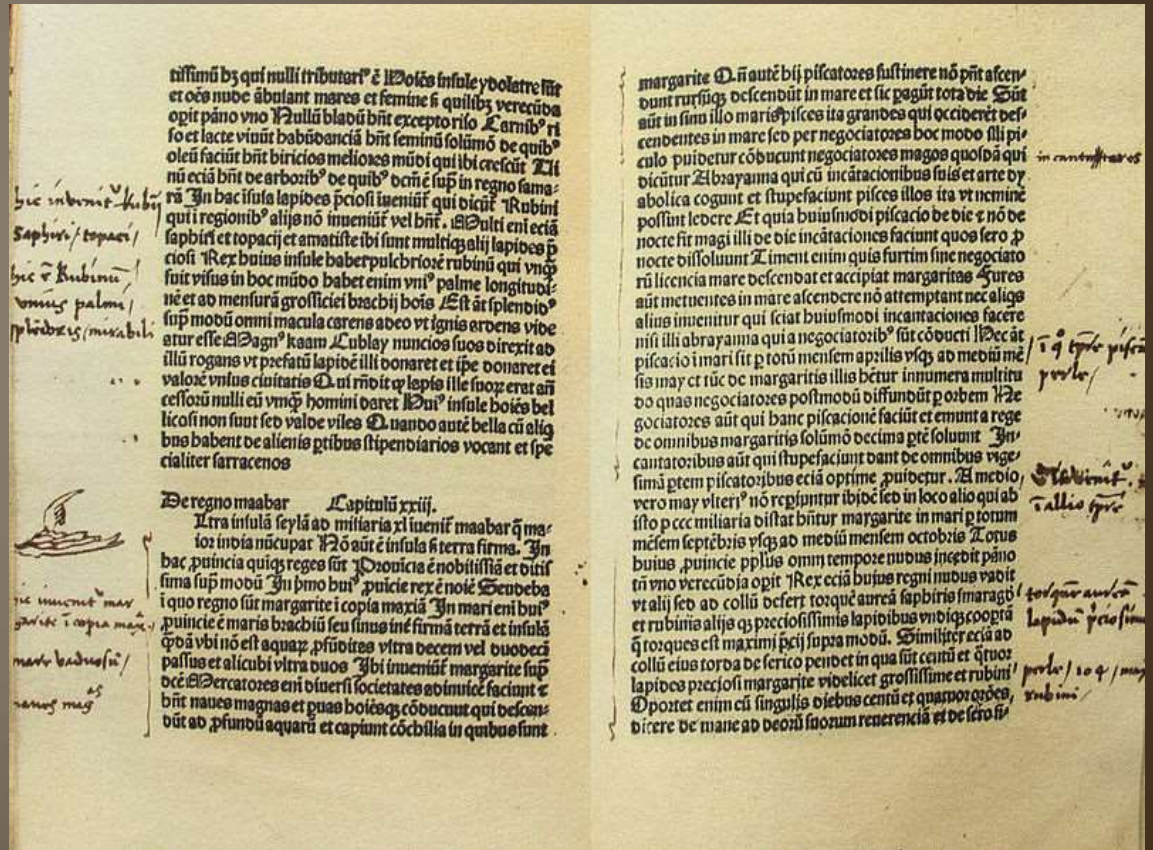 tissimū bʒ qui nulli tributariꝰ ē Hoīes insule ydolatre sūt
et oēs nude ābulant mares et femine sꝫ quilibꝫ verecūda
opit pāno vno Nullū bladū hn̄t excepto riso Carnibꝰ ri
so et lacte viuūt habūdanciā hn̄t seminū solūmō de quibꝰ
oleū faciūt hn̄t biricios meliores mūdi qui ibi crescūt Ui
nū eciā hn̄t de arboribꝰ de quibꝰ dcm̄ ē sup̄ in regno sama-
rā In hac īsula lapides p̄ciosi īueniūt̄ qui dicūt̄ Rubini
qui ī regionibꝰ alijs nō inueniūt̄ vel hn̄t. Multi eni eciā
saphiri et topacij et amatiste ibi sunt multiqꝫ alij lapides p̄
ciosi Rex huius insule habet pulchriorē rubinū qui vnqꝫ
fuit visus in hoc mūdo habet enim vniꝰ palme longitudi-
nē et ad mensurā grossiciei brachij hoīs Est āt splendidꝰ
sup̄ modū omni macula carens adeo vt ignis ardens vide
atur esse Magnꝰ kaam Cublay nuncios suos direxit ad
illū rogans vt prefatū lapidē illi donaret et ip̄e donaret ei
valorē vnius ciuitatis Qui rn̄dit qꝫ lapis ille suoꝝ erat an̄
cessorū nulli eū vnqꝫ homini daret Huiꝰ insule hoiēs bel
licosi non sunt sed valde viles Quando autē bella cū aliq
bus habent de alienis ꝑtibus stipendiarios vocant et spe
cialiter sarracenos
De regno maabar Capitulū xxiij.
Ltra insulā seylā ad miliaria xl īuenit̄ maabar q̄ ma-
ior india nūcupat̄ Nō aūt ē insula sꝫ terra firma. In
hac ꝓuincia quiqꝫ reges sūt Prouīcia ē nobilissīa et ditis
sima sup̄ modū In p̄mo huiꝰ ꝓuīcie rex ē noīe Sendeba
i quo regno sūt margarite ī copia maxīa In mari eni huiꝰ
ꝓuincie ē maris brachiū seu sinus int̄ firmā terrā et insulā
q̄dā vbi nō est aquaꝝ ꝓfūditas vltra decem vel duodecī
passus et alicubi vltra duos Ibi inueniūt̄ margarite sup̄
dcē Mercatores eni diuersi societates adinuicē faciunt ⁊
hn̄t naues magnas et ꝑuas hoiēsqꝫ cōducunt qui descen-
dūt ad ꝓfundū aquarū et capiunt cōchilia in quibus sunt
hic invenit̄ Rubinj
Saphiri / topaci /
hic ē Rubinū /
vnius palmi /
splēdoris / mirabili
hic inuenit̄ mar
garite ī copia max.
mare vadosū /
margarite Qn̄ autē hij piscatores sustinere nō pn̄t ascen-
dunt rursūqꝫ descendūt in mare et sic ꝑagūt tota die Sūt
aūt in sinu illo maris pisces ita grandes qui occiderēt des-
cendentes in mare sed per negociatores hoc modo illi pi-
culo puidetur cōducunt negociatores magos quosdā qui
dicūtur Abrayanna qui cū incātacionibus suis et arte dy
abolica cogunt et stupefaciunt pisces illos ita vt neminē
possint ledere Et quia huiusmodi piscacio de die ⁊ nō de
nocte fit magi illi de die incātaciones faciunt quos sero ꝓ
nocte dissoluunt Timent enim quis furtim sine negociato
rū licencia mare descendat et accipiat margaritas Fures
aūt metuentes in mare ascendere nō attemptant nec aliqs
alius inuenitur qui sciat huiusmodi incantaciones facere
nisi illi abrayanna qui a negociatoribꝰ sūt cōducti Hec āt
piscacio ī mari fit ꝑ totū mensem aprilis vsqꝫ ad mediū mē
sis may et tūc de margaritis illis hētur innumera multitu
do quas negociatores postmodū diffundūt ꝑ orbem Ne
gociatores aūt qui hanc piscacionē faciūt et emunt a rege
de omnibus margaritis solūmō decima ꝑtē soluunt In-
cantatoribus aūt qui stupefaciunt dant de omnibus vige-
simā ꝑtem piscatoribus eciā optime ꝓuidetur. A medio
vero may vlteriꝰ nō reꝑiuntur ibidē sed in loco alio qui ab
isto ꝑ ccc miliaria distat hn̄tur margarite in mari ꝑ totum
mēsem septēbris vsqꝫ ad mediū mensem octobris Totus
huius ꝓuincie ppl̄us omni tempore nudus incedit pāno
tn̄ vno verecūdia oꝑit Rex eciā hujus regni nudus vadit
vt alij sed ad collū defert torquē aureā saphiris smaragdꝰ
et rubinis alijsqꝫ preciosissimis lapidibus vndiqꝫ cooptā
q̄ torques est maximi p̄cij supra modū. Similiter eciā ad
collū eius corda de serico pendet in qua sūt centū et q̄tuor
lapides preciosi margarite videlicet grossissime et rubini
Oportet enim eū singulis diebus centū et quatuor orōes,
dicere de mane ad deorū suorum reuerenciā et de sero si-
incantatores
ī q̊ tp̄re pisca
perle /
ī allio tp̄re
torquē aureā
lapidū p̄ciosim
perle / 104 / may
rubini /